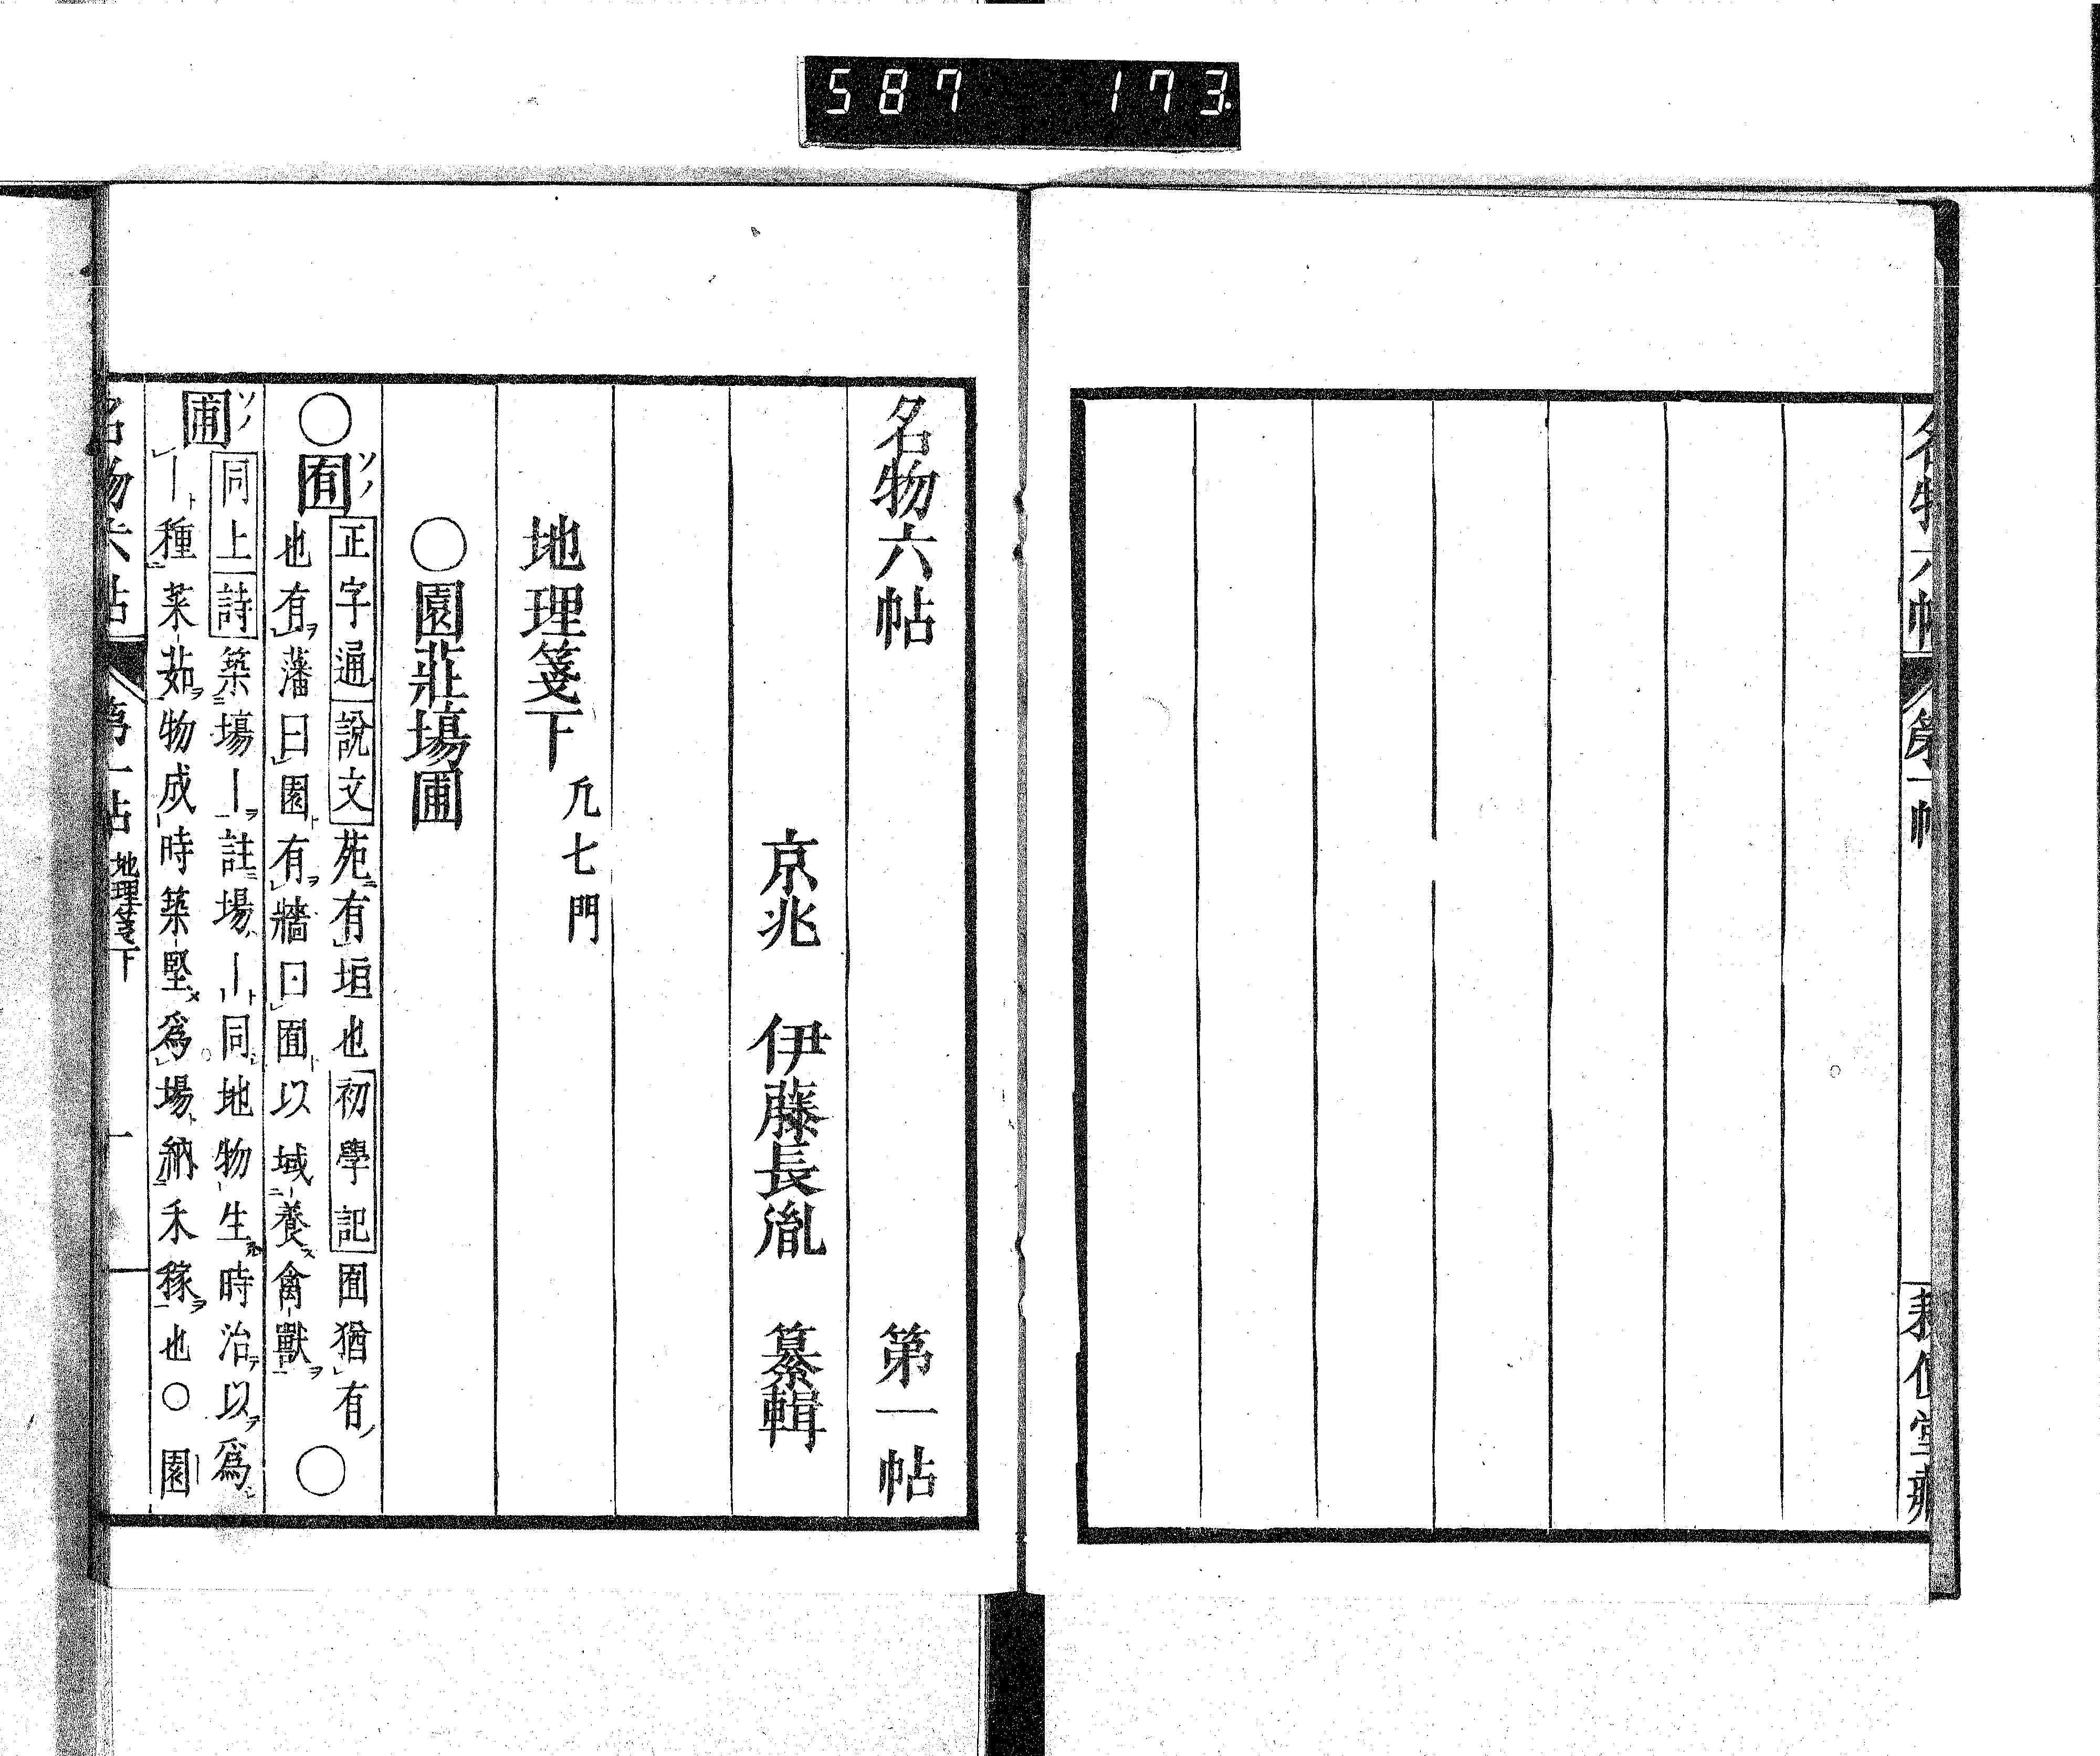 587 173.
名物六帖
第一帖
名物六帖 第一帖
京兆 伊藤長胤 纂輯
地理箋下 凢七門
○園莊場圃
○囿ソノ 正字通 說文 苑有垣也 初學記 囿猶有
也有藩曰園有牆曰囿以域養禽獸 ○
圃ソノ 同上 詩 築場丨註場丨同地物生時治以爲
丨種菜茹物成時築堅爲場納禾稼也○園
名物六帖 第一帖 地理箋下 一